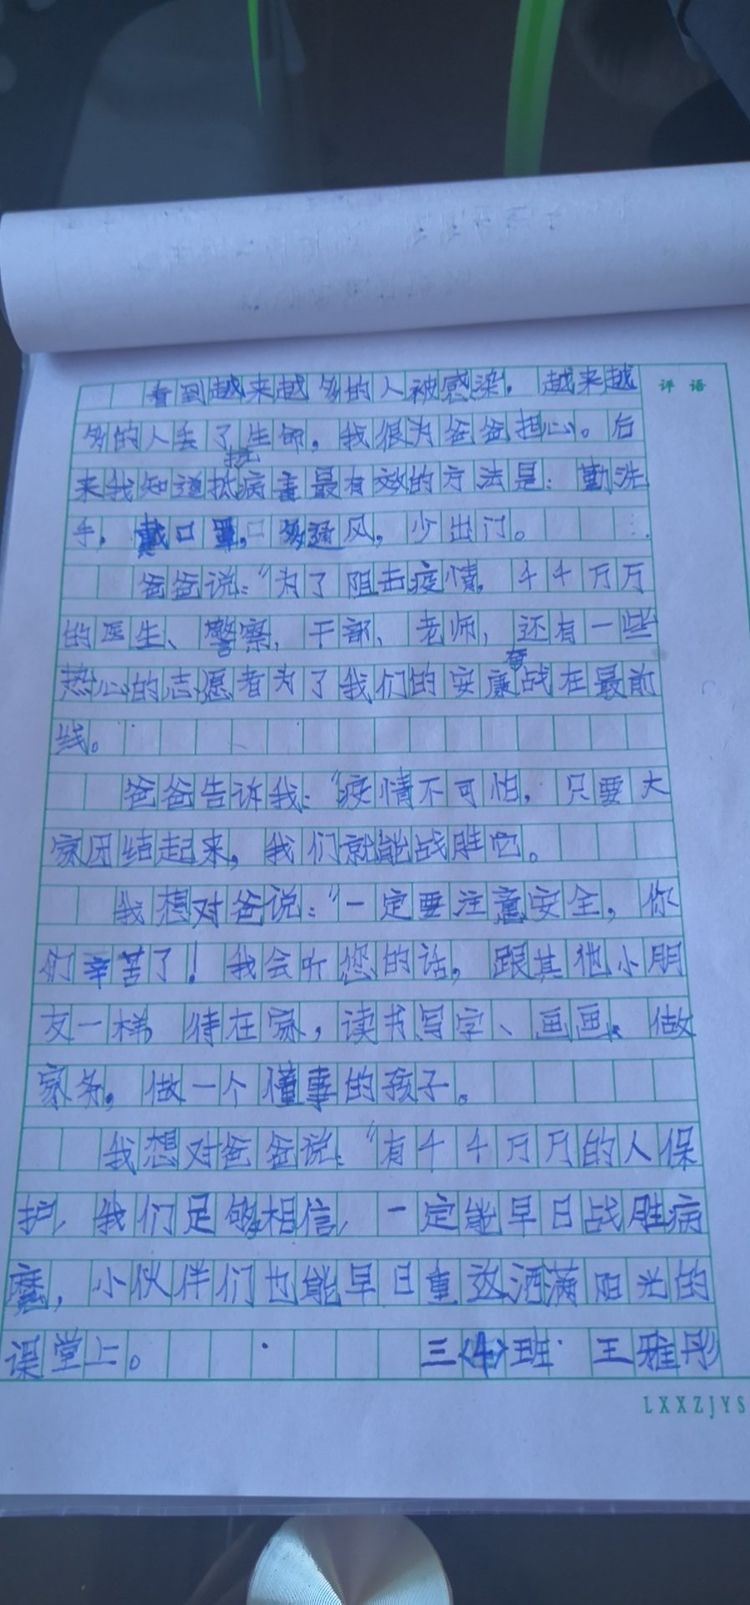 看到越来越多的人被感染，越来越
评语
多的人丢了生命，我很为爸爸担心。后
来我知道抵抗病毒最有效的方法是：勤洗
手，戴口罩，多通风，少出门。
爸爸说：“为了阻击疫情，千千万万
的医生、警察，干部、老师，还有一些
热心的志愿者为了我们的安康奋战在最前
线。
爸爸告诉我：“疫情不可怕，只要大
家团结起来，我们就能战胜它。
我想对爸说：“一定要注意安全，你
们辛苦了！我会听您的话，跟其他小朋
友一样，待在家，读书写字、画画、做
家务，做一个懂事的孩子。
我想对爸爸说：“有千千万万的人保
护，我们足够相信，一定能早日战胜病
魔，小伙伴们也能早日重返洒满阳光的
课堂上。 三〈4〉班 王雅彤
LXXZJYS